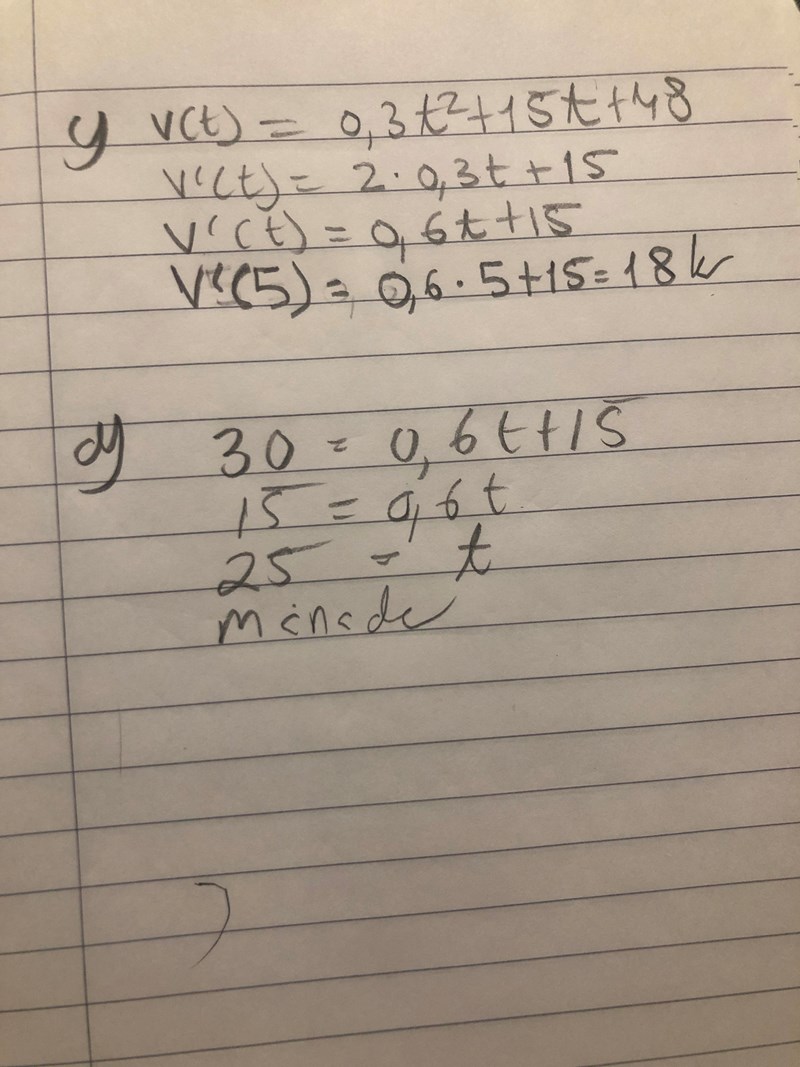 y V(t) = 0,3t²+15t+48
V'(t) = 2·0,3t+15
V'(t) = 0,6t+15
V'(5) = 0,6·5+15=18kr
d) 30 = 0,6t+15
15 = 0,6t
25 = t
månader